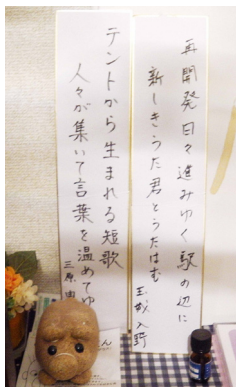 再開発日々進みゆく駅の辺に
新しきうた君とうたはむ
玉城入野
テントから生まれる短歌
人々が集いて言葉を温めてゆ
三原由
ん